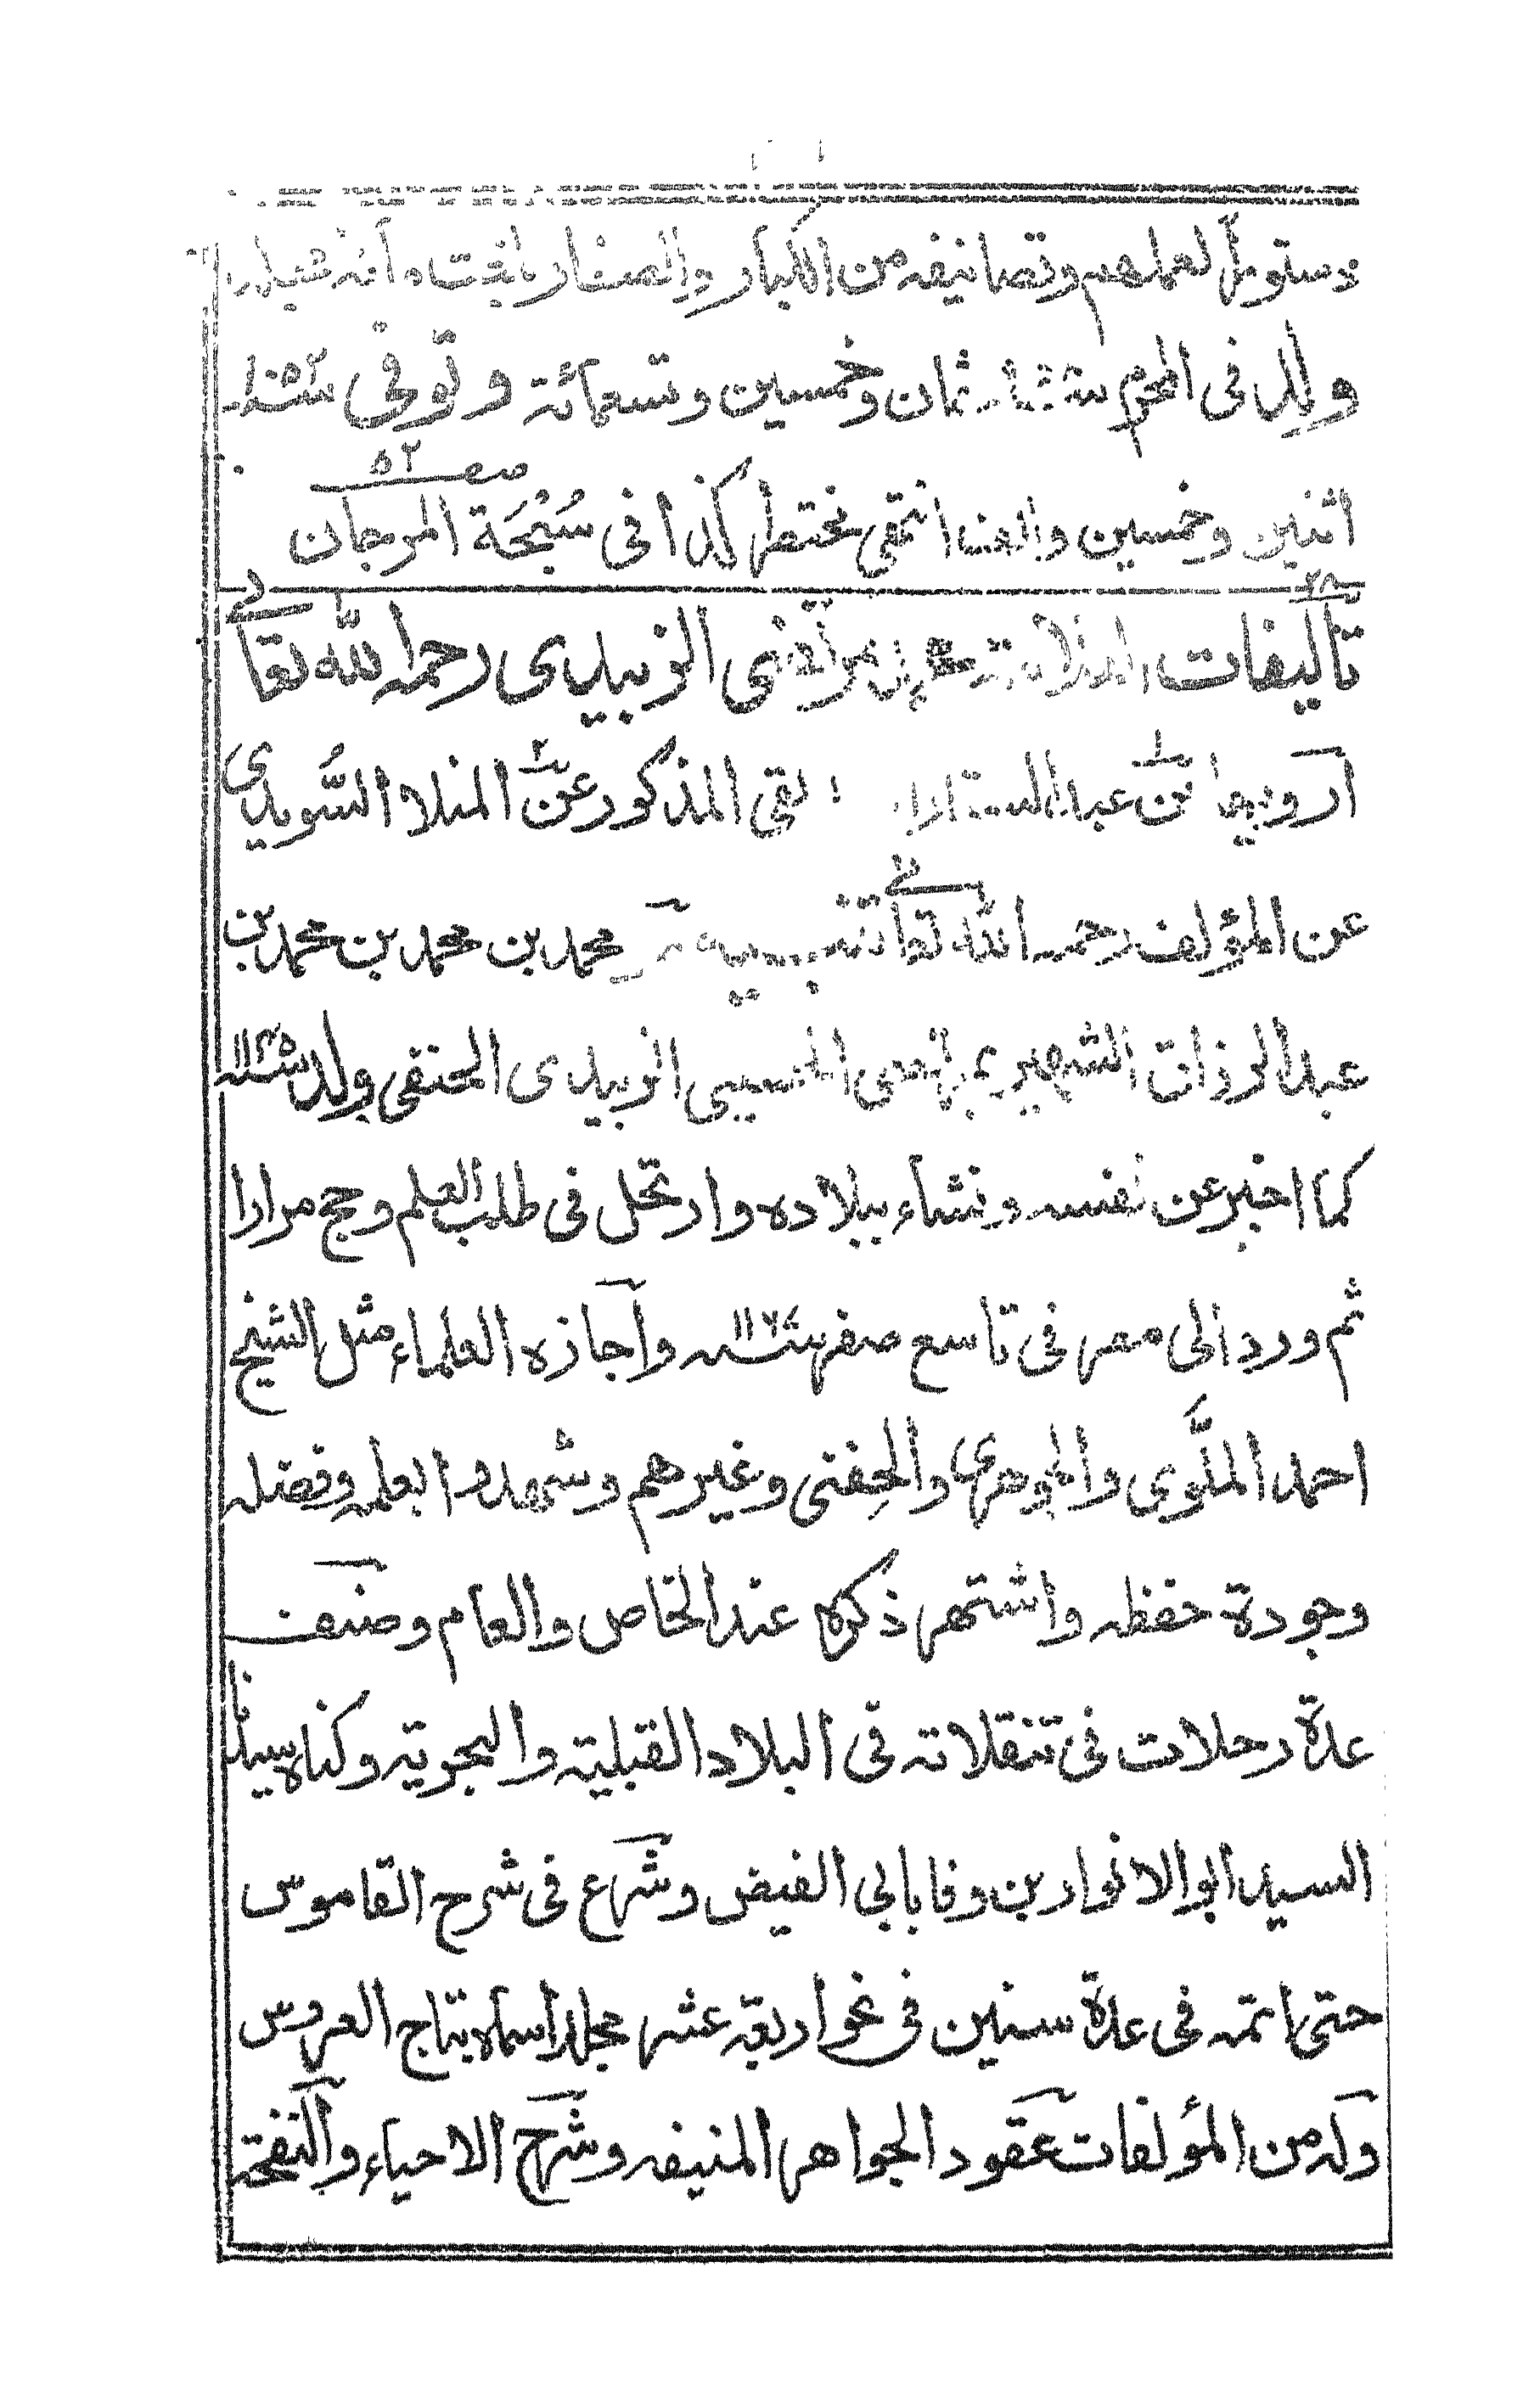 دستورًا لعملهم وتصانيفه من الكبار والصغار
ولد فى المحرم ثمان وخمسين وتسعمائة وتوفى سنة ١٠٥٢
اثنين وخمسين والف انتهى مختصرا كذا فى سُبْحَة المرجان صفـ ٥٢
تأليفات مرتضى الزبيدى رحمه الله تعالے
آرويها عن عبد الستار المذكور عن المنلا السُّويدى
عن المؤلف رحمه الله تعالے محمد بن محمد بن محمد بن
عبد الرزاق الشهير بمرتضى الحسينى الزبيدى الحنفى ولد سنة ١١٤٥
كما اخبر عن نفسه ونشاء ببلاده وارتحل فى طلب العلم وحج مرارا
ثم ورد الى مصر فى تاسع صفر سنة ١١٦٧ وآجازه العلماء مثل الشيخ
احمد الملَّوى والجوهرى والحِفنى وغيرهم وشهدوا بعلمه وفضله
وجودة حفظه واشتهر ذكره عند الخاص والعام وصنف
عدة رحلات فى تنقلاته فى البلاد القبلية والبحرية وكناه سيدنا
السيد ابو الانوار بن وفا بابى الفيض وشرع فى شرح القاموس
حتى اتمه فى عدة سنين فى نحو اربعة عشر مجلدا سماه بتاج العروس
وله من المؤلفات عقود الجواهر المنيفه وشرح الاحياء والنفحة